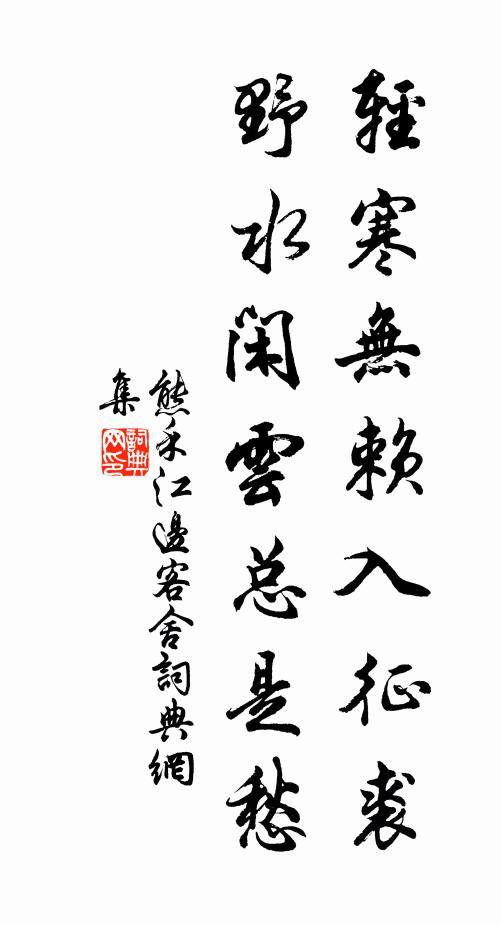 輕寒無賴入征裘
野水閑雲总是愁
熊禾江邊客舍詞典網
集
詞典網印